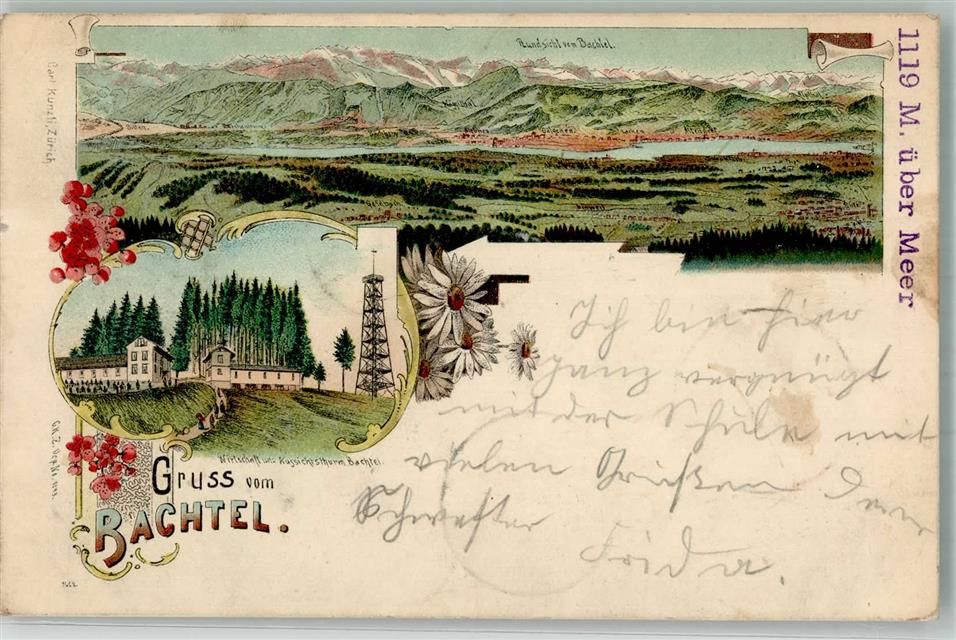 Rundsicht vom Bachtel.
1119 M. über Meer
Carl Künzli, Zürich
Wirtschaft und Aussichtsthurm Bachtel.
Gruss vom
BACHTEL.
Ich bin hier
ganz vergnügt
mit der Schule mit
vielen Grüßen Deine
Schwester
Frida.